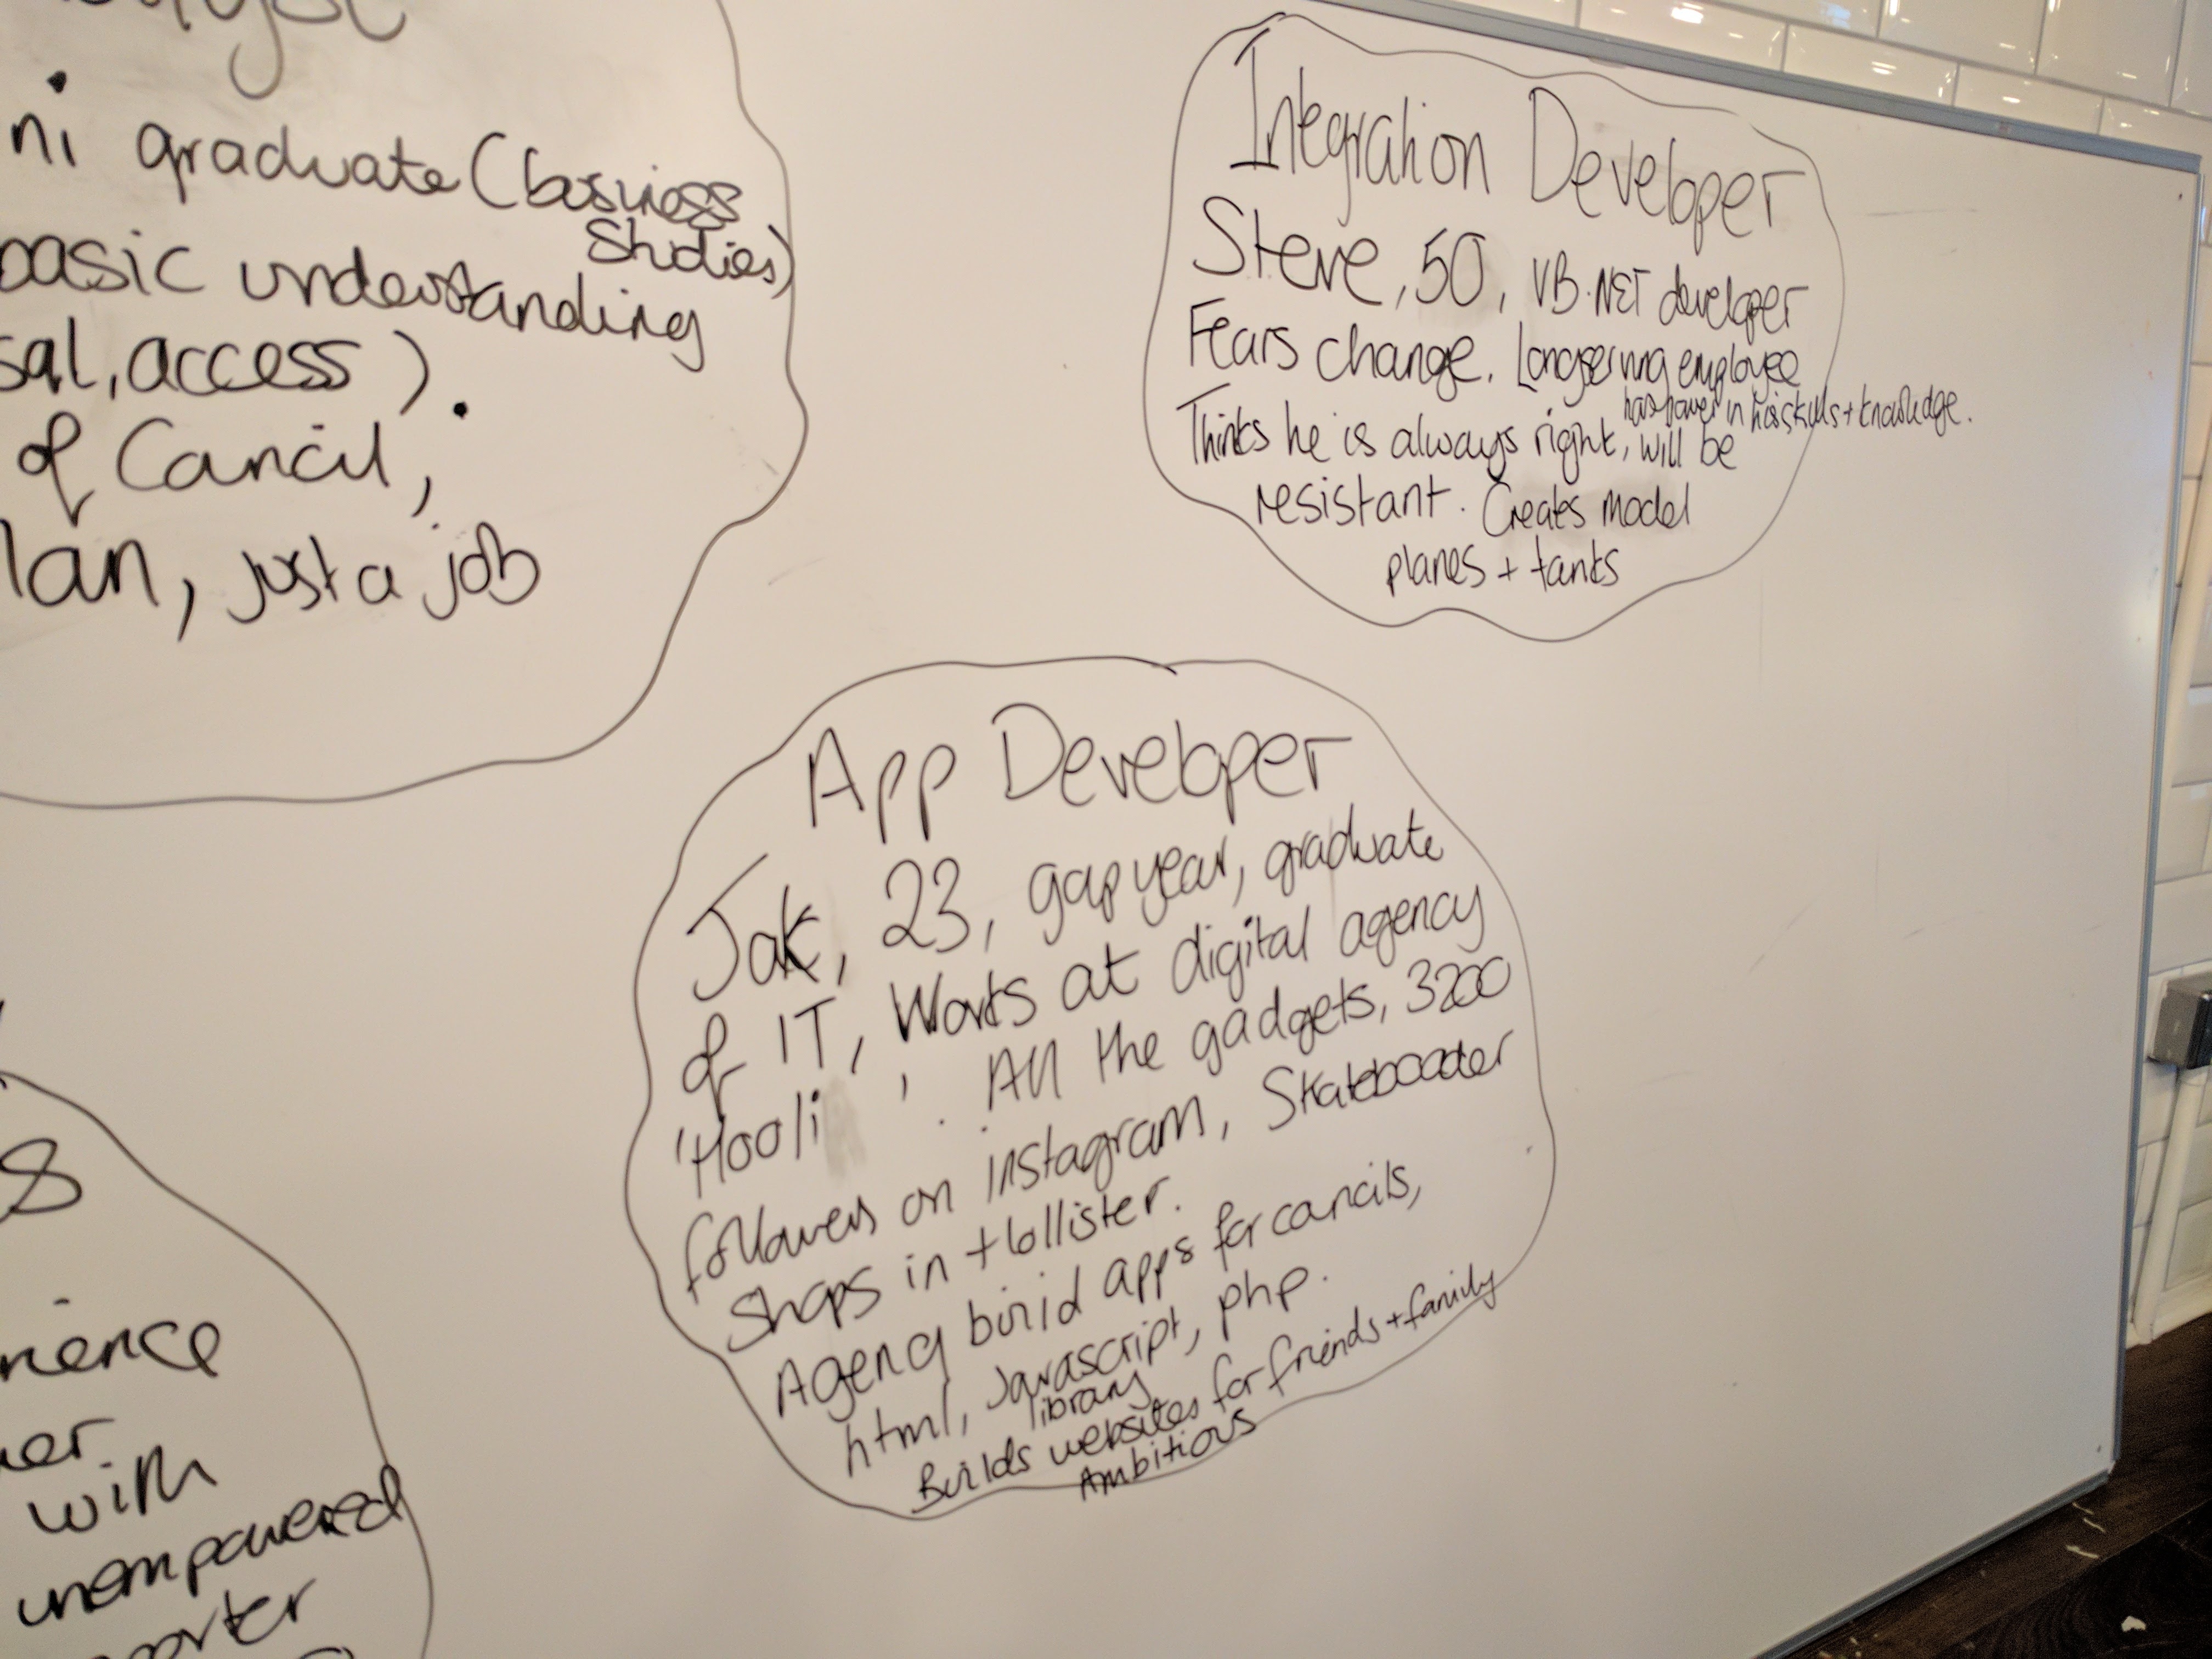 ni graduate (business
studies)
basic understanding
sql, access).
of Council,
lan, just a job
Integration Developer
Steve, 50, VB.NET developer
Fears change. Longserving employee
has power in his skills + knowledge.
Thinks he is always right, will be
resistant. Creates model
planes + tanks
App Developer
Jak, 23, gap year, graduate
of IT, Works at digital agency
'Hooli '. All the gadgets, 3200
followers on instagram, Skateboader
Shops in Hollister.
Agency build apps for councils,
html, Javascript, php.
library
Builds websites for friends + family
Ambitious
8
rience
with
unempowered
porter